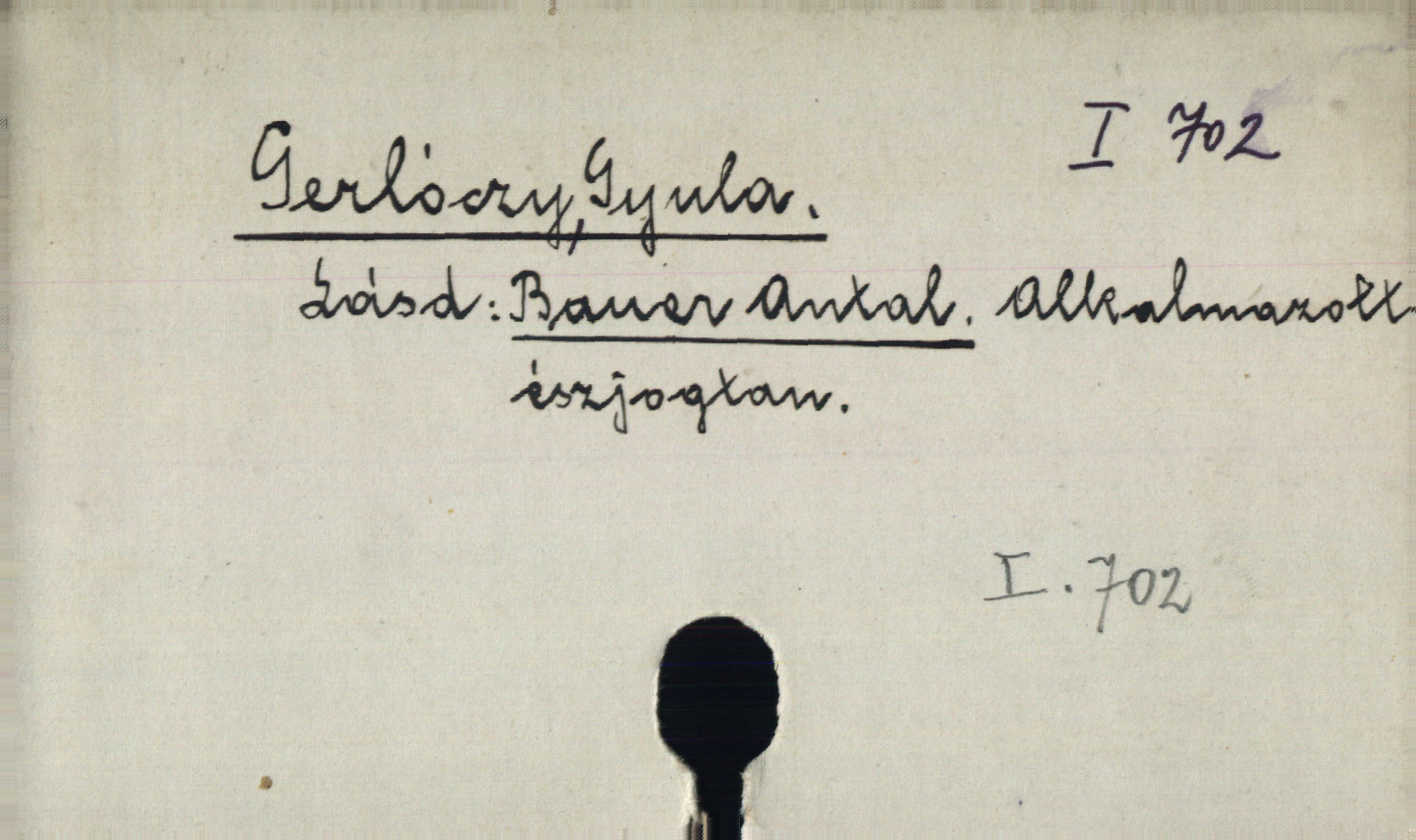 I 702
Gerlóczy, Gyula.
Lásd: Bauer Antal. Alkalmazott
észjogtan.
I. 702